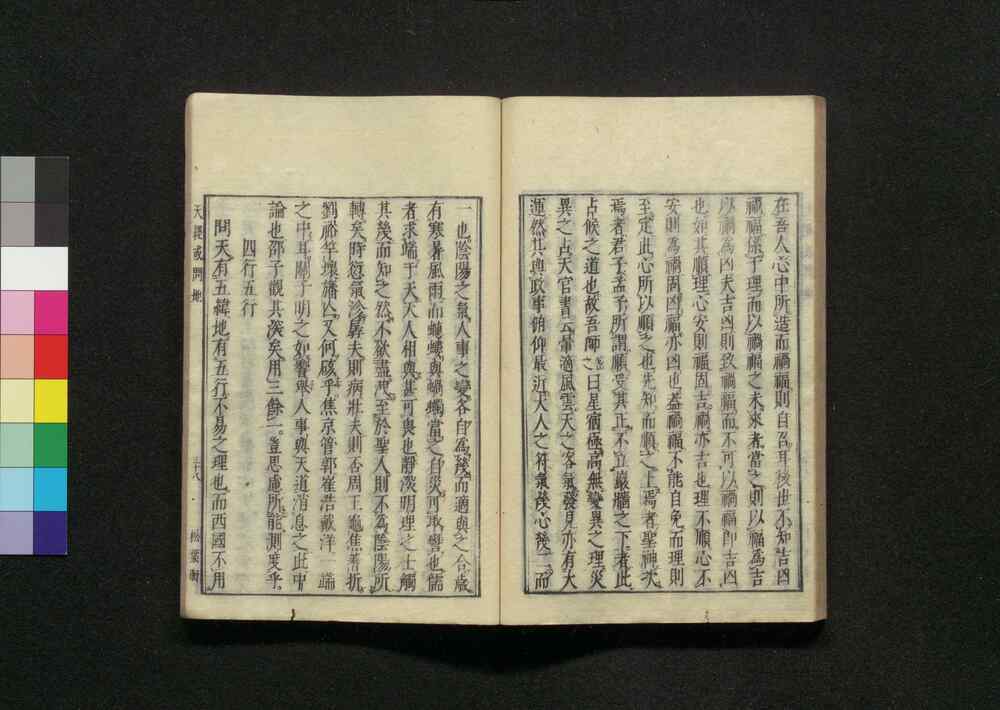 在吾人心中所造而禍福則自召耳後世不知吉凶
禍福係于理而以禍福之未來者當之則以福為吉
以禍為凶夫吉凶則致禍福而不可以禍福即吉凶
也如其順理心安則福固吉禍亦吉也理不順心不
安則為禍固凶福亦凶也蓋禍福不能自免而理則
至定此心所以順之也先知而順之上焉者聖神次
焉者君子孟子所謂順受其正不立巖牆之下者此
占候之道也故吾師曰星宿極高無變異之理災
異之占天官書云暈適風雲天之客氣發見亦有大
運然其與政事俯仰最近天人之符氣幾心幾一而
一也陰陽之氣人事之變各自為幾而適與之合歲
有寒暑風雨而蟣蠛與蝸蠋當之自災可取譬也儒
者求端于天天人相與甚可畏也靜深明理之士觸
其幾而知之然不欲盡洩至於聖人則不為陰陽所
轉矣時愆氣沴孱夫則病壯夫則否周王龜焦蓍折
劉裕竿壞旛又何礙乎焦京管郭崔浩戴洋一端
之中耳關于明之如響舉人事與天道消息之此中
論也邵子觀其深矣用三餘一豈思慮所能測度乎
四行五行
問天有五緯地有五行不易之理也而西國不用
天經或問地
三十八
松葉軒